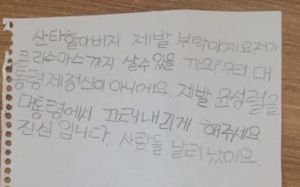 산타할아버지 제발 부탁이예요저가
크리스마스까지 살수있을까요?우리 대
통령 제정신이 아니에요. 제발 윤성렬을
대통령에서 끄러내리게 해줘세요
진실 입니다. 사람들 난리 났어요.